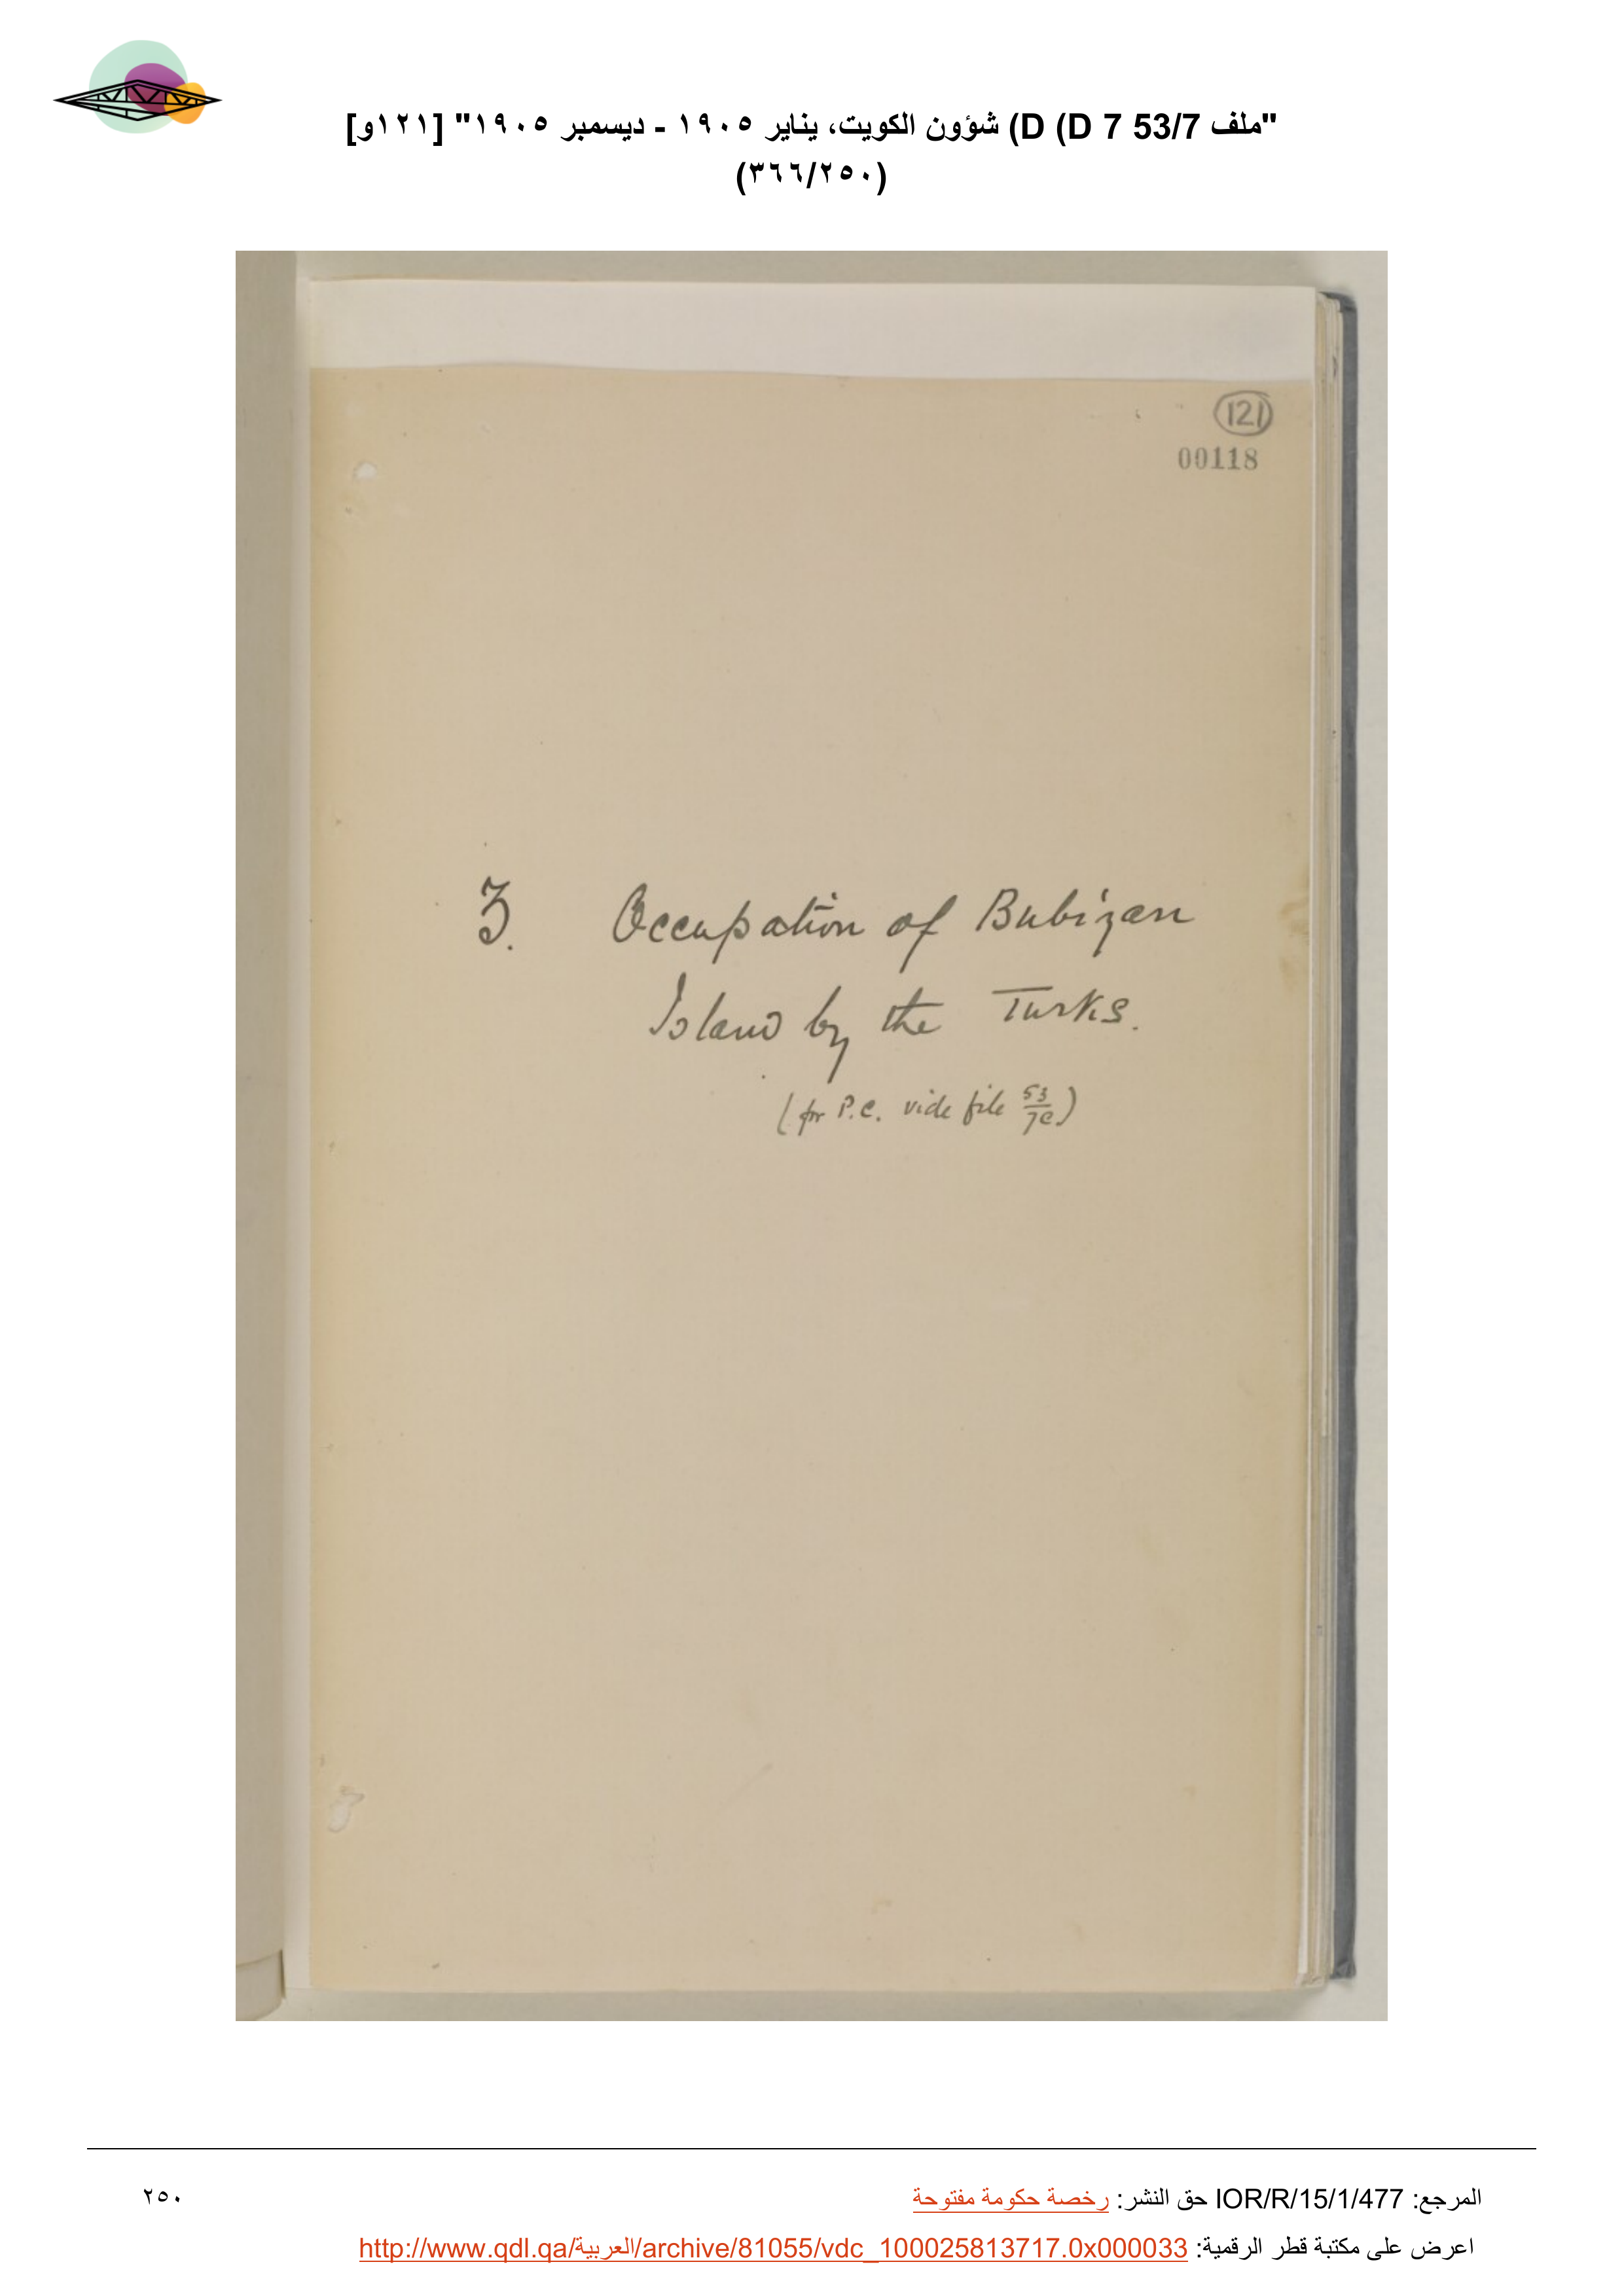 "ملف 53/7 D (D 7) شؤون الكويت، يناير ١٩٠٥ - ديسمبر ١٩٠٥" [١٢١و]
(٣٦٦/٢٥٠)
121
00118
3. Occupation of Bubizan
Island by the Turks.
(for P.C. vide file 53/7C)
المرجع: IOR/R/15/1/477 حق النشر: رخصة حكومة مفتوحة
٢٥٠
اعرض على مكتبة قطر الرقمية: http://www.qdl.qa/العربية/archive/81055/vdc_100025813717.0x000033